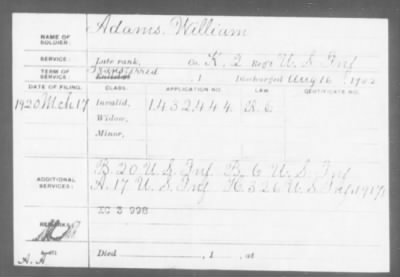 NAME OF SOLDIER: Adams, William
SERVICE: Late rank, Co. K, 2 Reg't U.S. Inf
TERM OF SERVICE: Transferred Enlisted , 1 Discharged Aug 16 190
DATE OF FILING. CLASS. APPLICATION NO. LAW. CERTIFICATE NO.
1920 Mch 17 Invalid, 1432444
Widow,
Minor,
ADDITIONAL SERVICES: B. 20 U.S. Inf B. 6 U.S. Inf
A. 17 U.S. Inf K 326 U.S. Inf 1917
XC 3 998
REMARKS:
Died , 1 , at